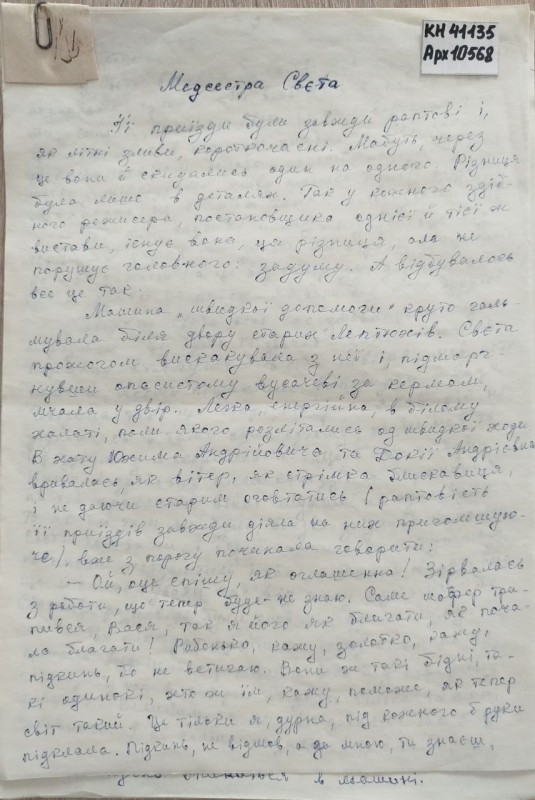 КН 41135
Арх 10568
Медсестра Свєта
Її приїзди були завжди раптові і,
як літні зливи, короткочасні. Мабуть, через
це вони й скидались один на одного. Різниця
була лише в деталях. Так у кожного здіб-
ного режисера, постановщика однієї й тієї ж
вистави, існує вона, ця різниця, але не
порушує головного: задуму. А відбувалось
все це так.
Машина „швидкої допомоги" круто галь-
мувала біля двору старих Лептюхів. Свєта
прожогом вискакувала з неї і, підморг-
нувши опасистому вусачеві за кермом,
мчала у двір. Легка, енергійна, в білому
халаті, поли якого розлітались од швидкої ходи
В хату Юхима Андрійовича та Докії Андріївни
вривалась, як вітер, як стрімка блискавиця,
і не даючи старим оговтатись (раптовість
її приїздів завжди діяла на них приголомшую-
че), вже з порогу починала говорити:
— Ой, оце спішу, як оглашенна! Зірвалась
з роботи, що тепер буде – не знаю. Саме шофер тра-
пився, Вася, так я його як благати, як поча-
ла благати! Рибонько, кажу, золотко, кажу,
підкинь, бо не встигаю. Вони ж такі бідні, та-
кі одинокі, хто ж їм, кажу, поможе, як тепер
світ такий. Це тільки я, дурна, під кожного б руки
підклала. Підкинь, не відмов, а за мною, ти знаєш,
в машині.